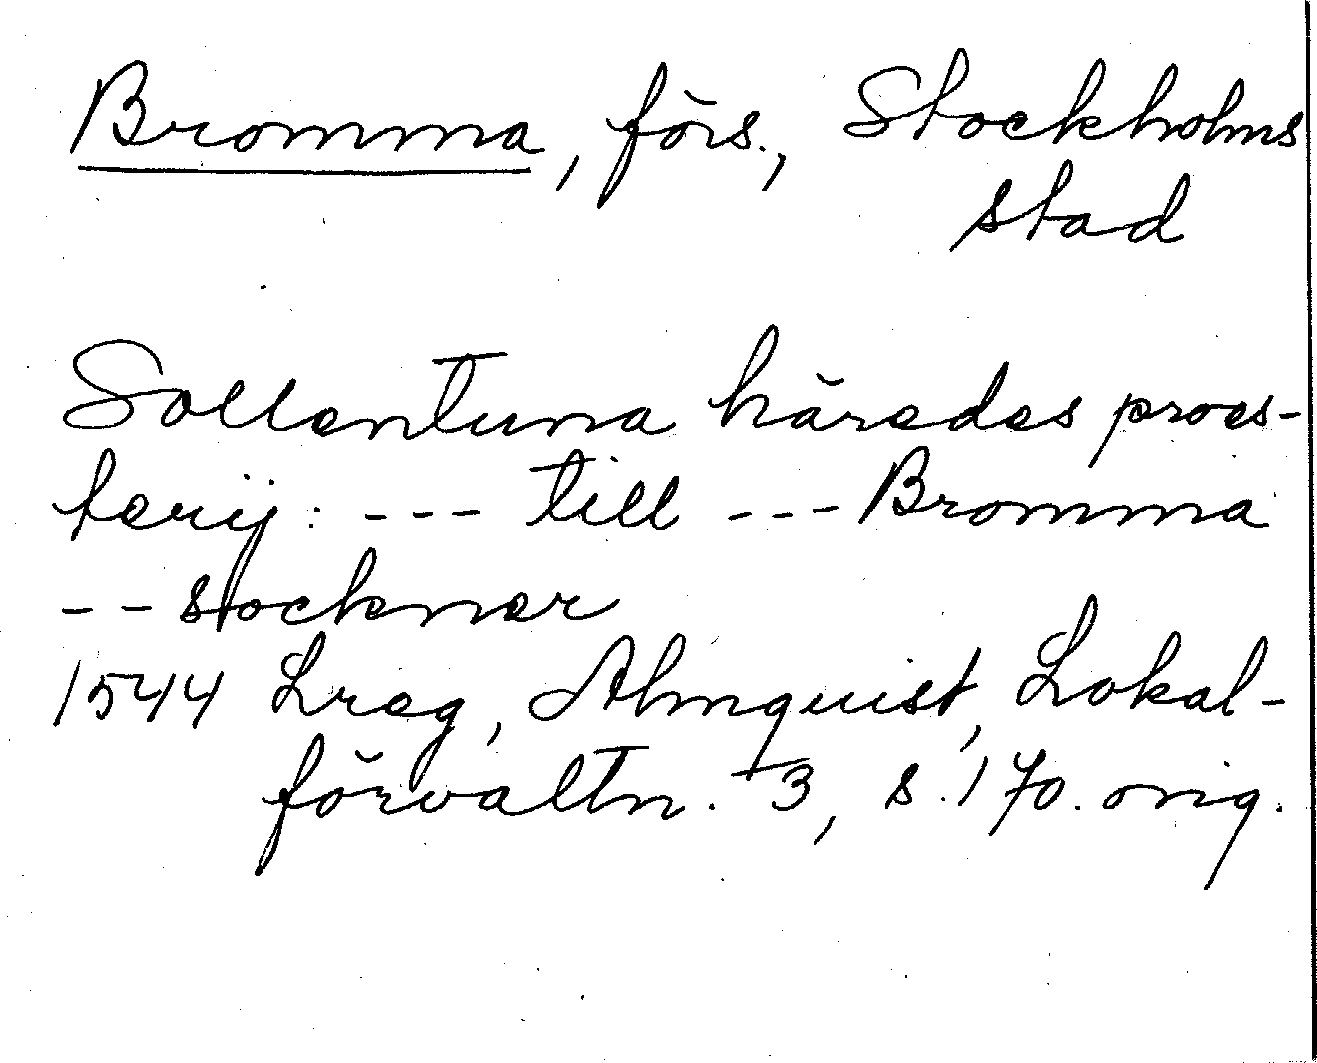 Bromma, förs., Stockholms
stad
Sollentuna häredes proes-
terij: --- till --- Bromma
-- stocknar
1544 Lreg, Almquist, Lokal-
förvaltn. 3, s. 170. orig.